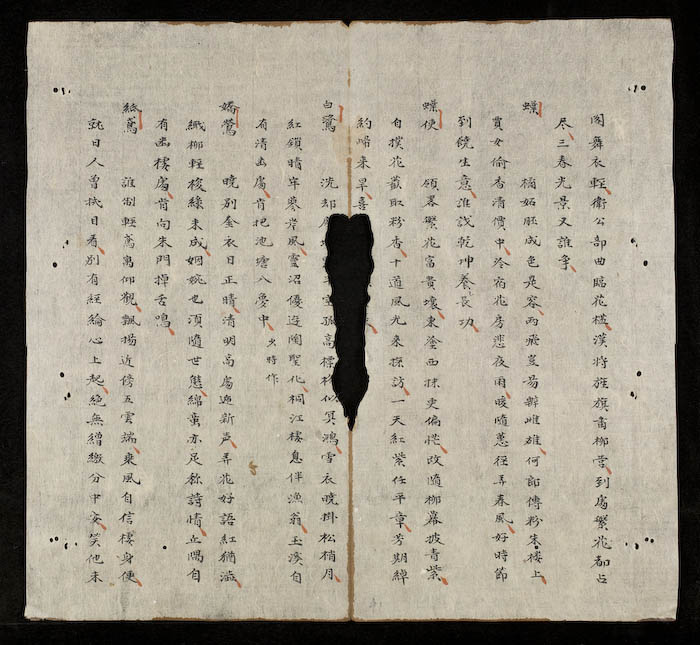 閣舞衣輕衛公部曲臨花檻漢將旌旗畨柳營到處繁花都占
尽三春光景又誰争
蝶 檎妬胚成色是容兩飛豈易辨雌雄何郎傅粉朱樓上
賈女偷香清價中冷宿花房悲夜雨暖隨蕙徑弄春風好時節
到饒生意誰識乾坤養長功
蝶使 領畧繁花富貴壇東塗西抹更偏忙改隨柳幕披青紫
自撲花叢取粉香十道風光来探訪一天紅紫任平章芳期綽
約㷌来早喜
白鷺 洗却 孤高標格似冥鴻雪衣晚掛松梢月
紅鎖晴牢蓼岸風靈沼優遊陶聖化桐江棲息伴漁翁玉溪自
有清幽處肯把池塘入夢中 少時作
嬌鶯 曉別金衣日正晴清明高處迎新声弄花好語紅猶溢
織柳輕梭綠未成姻婉也須隨世態綿蛮亦足敘詩情丘隅自
有幽棲處肯向朱門掉舌鳴
紙鳶 誰制輕鳶寓仰觀飄揚近傍五雲端乗風自信棲身便
就日人曾拭目看別有經綸心上起絕無繒繳分中安笑他未